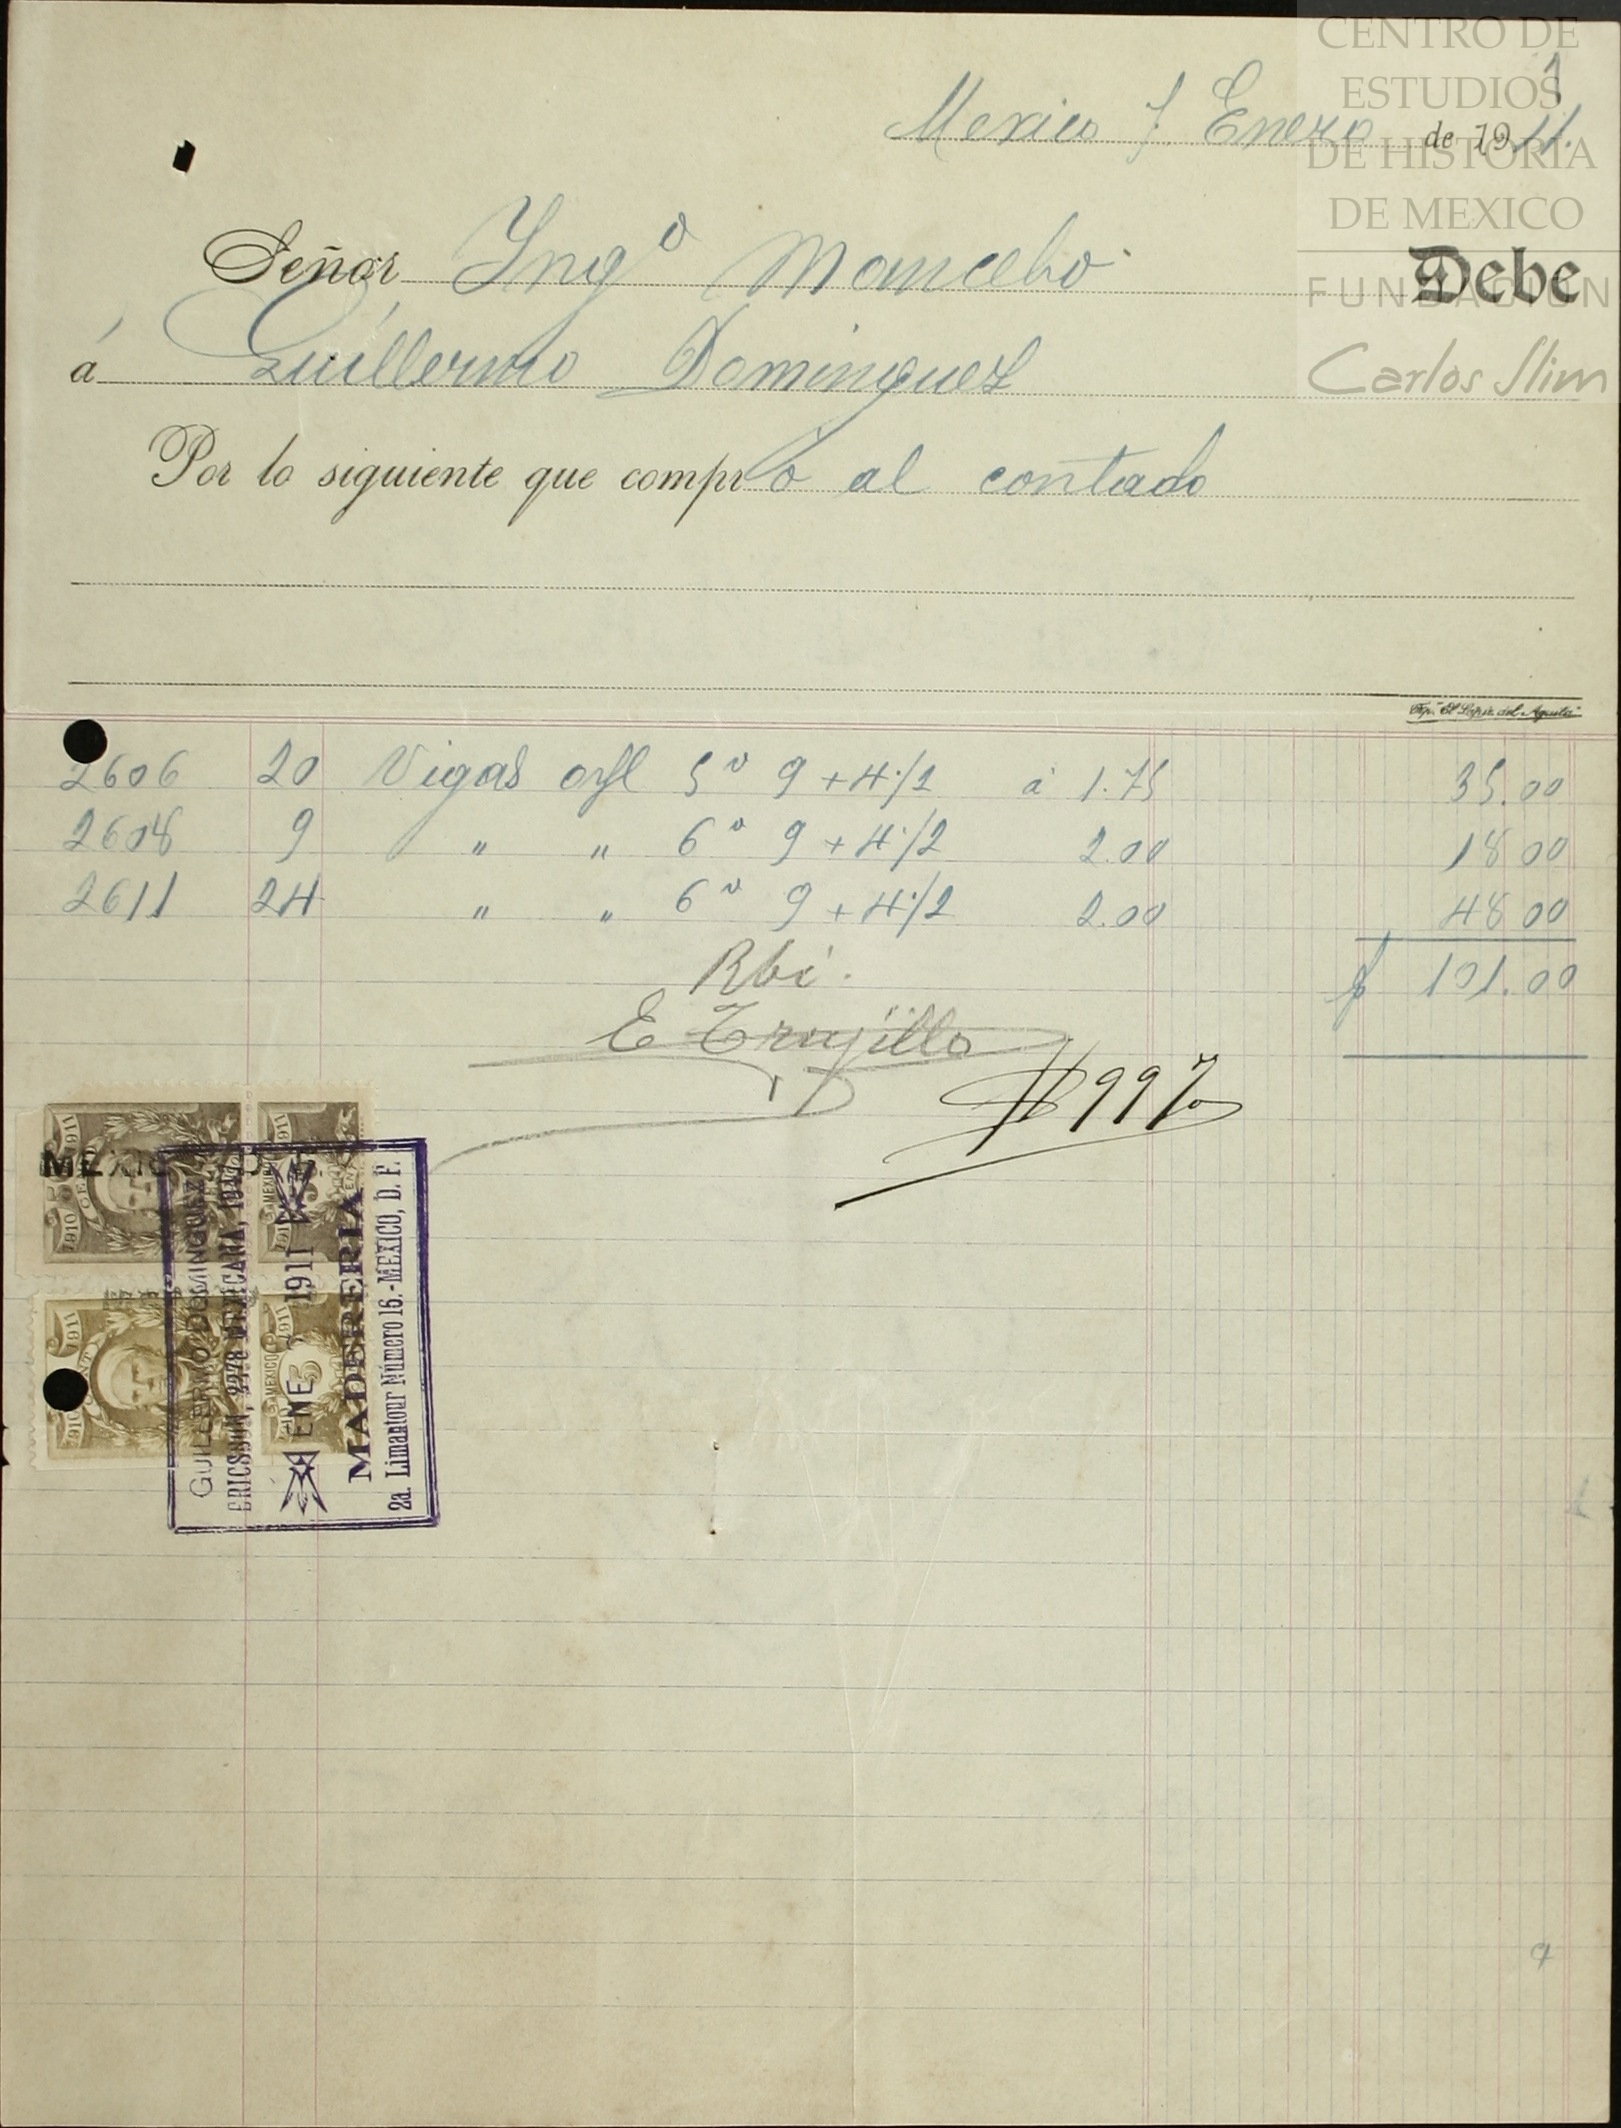 CENTRO DE
ESTUDIOS
DE HISTORIA
DE MEXICO
FUNDACIÓN
Carlos Slim
1
Mexico 7. Enero de 1911.
Señor Ingº Mancebo. Debe
á Guillermo Dominguez
Por lo siguiente que compró al contado
Tip. "El Lapiz del Aguila"
2606 20 Vigas 5º 9 + 4 1/2 á 1.75 35.00
2608 9 " " 6º 9 + 4 1/2 2.00 18 00
2611 24 " " 6º 9 + 4 1/2 2.00 48 00
Rbí. $ 101.00
E Trujillo
$ 99 70
MEXICO
GUILLERMO DOMINGUEZ
ERICSSON, 2278 MEXICANA,
ENE 5 1911
MADERERIA
2a. Limantour Número 16.-MEXICO, D. F.
1910 1911
1910 1911
MEXICO
MEXICO